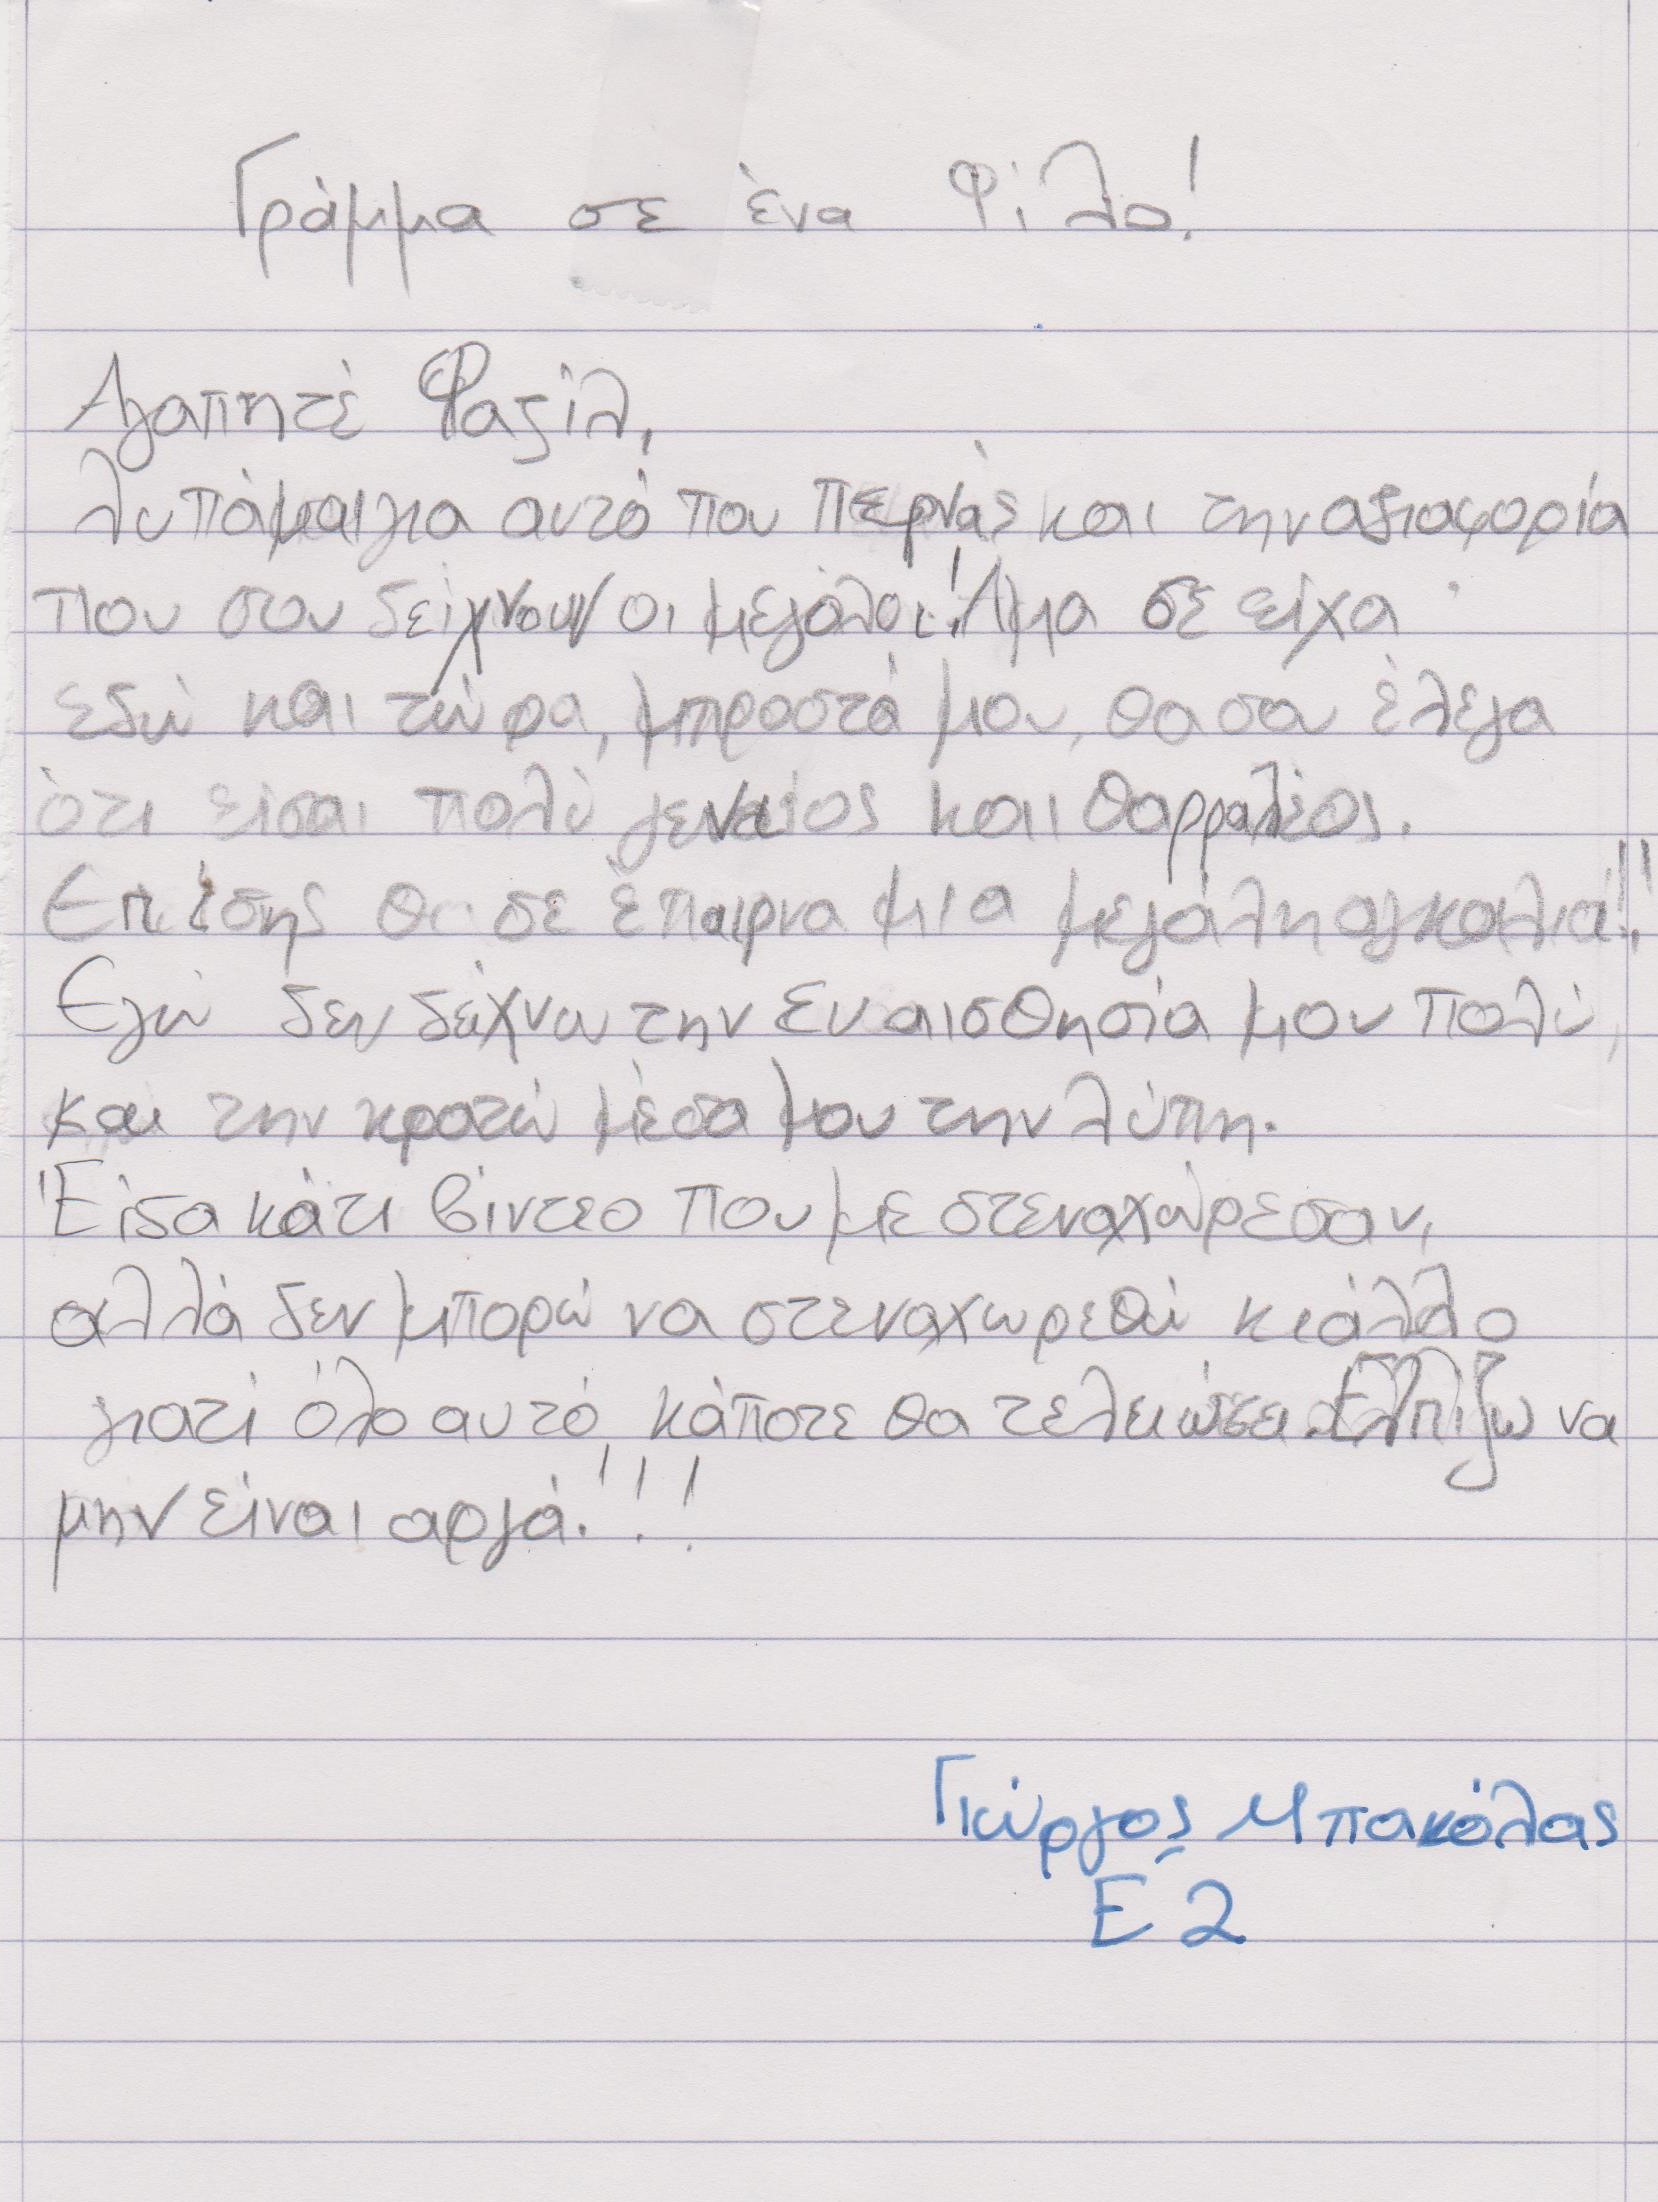 Γράμμα σε ένα Φίλο!
Αγαπητέ Φαζίλ,
λυπάμαι για αυτό που περνάς και την αδιαφορία
που σου δείχνουν οι μεγάλοι! Άμα σε είχα
εδώ και τώρα, μπροστά μου, θα σου έλεγα
ότι είσαι πολύ γεναίος και θαρραλέος.
Επίσης θα σε έπαιρνα μια μεγάλη αγκαλιά!!
Εγώ δεν δείχνω την ευαισθησία μου πολύ,
και την κρατώ μέσα μου την λύπη.
Είδα κάτι βίντεο που με στεναχώρεσαν,
αλλά δεν μπορώ να στεναχωρεθώ κι άλλο
γιατί όλο αυτό κάποτε θα τελειώσει. Ελπίζω να
μην είναι αργά!!!
Γιώργος Μπακόλας
Ε΄2